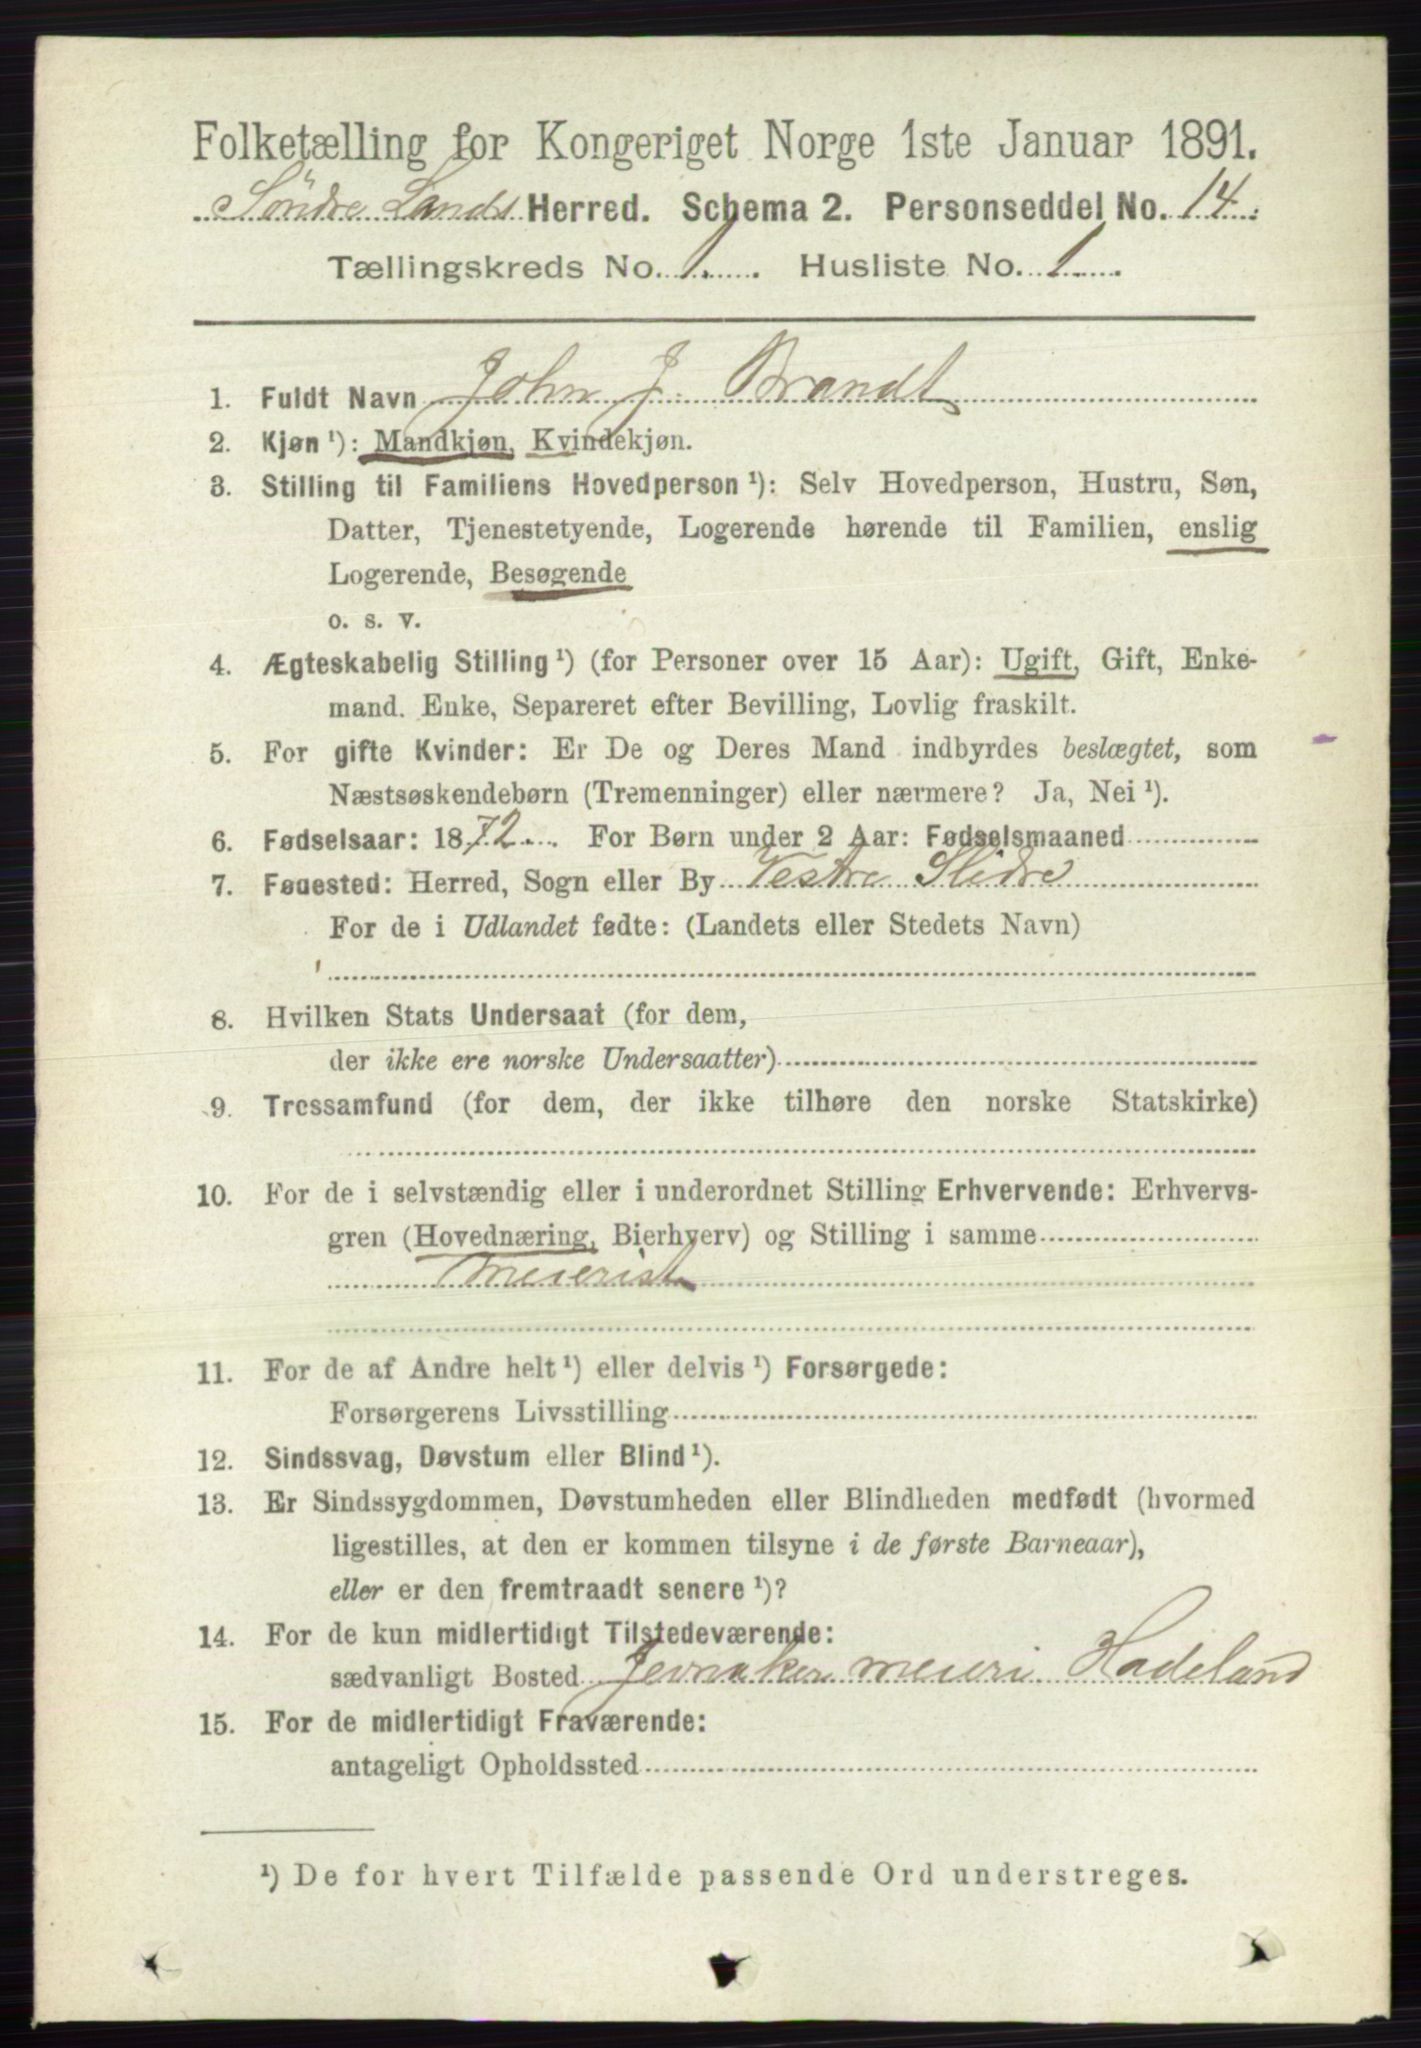 Folketælling for Kongeriget Norge 1ste Januar 1891.
Söndre Lands Herred. Schema 2. Personseddel No. 14.
Tællingskreds No. 1. Husliste No. 1
1. Fuldt Navn John J. Brandt
2. Kjøn ¹): Mandkjøn, Kvindekjøn.
3. Stilling til Familiens Hovedperson ¹): Selv Hovedperson, Hustru, Søn,
Datter, Tjenestetyende, Logerende hørende til Familien, enslig
Logerende, Besøgende
o. s. v.
4. Ægteskabelig Stilling ¹) (for Personer over 15 Aar): Ugift, Gift, Enke-
mand. Enke, Separeret efter Bevilling, Lovlig fraskilt.
5. For gifte Kvinder: Er De og Deres Mand indbyrdes beslægtet, som
Næstsøskendebørn (Tremenninger) eller nærmere? Ja, Nei ¹).
6. Fødselsaar: 1872. For Børn under 2 Aar: Fødselsmaaned
7. Føuested: Herred, Sogn eller By Vestre Slidre
For de i Udlandet fødte: (Landets eller Stedets Navn)
8. Hvilken Stats Undersaat (for dem,
der ikke ere norske Undersaatter)
9. Tressamfund (for dem, der ikke tilhøre den norske Statskirke)
10. For de i selvstændig eller i underordnet Stilling Erhvervende: Erhvervs-
gren (Hovednæring, Bierhverv) og Stilling i samme
meierist
11. For de af Andre helt ¹) eller delvis ¹) Forsørgede:
Forsørgerens Livsstilling
12. Sindssvag, Døvstum eller Blind ¹).
13. Er Sindssygdommen, Døvstumheden eller Blindheden medfødt (hvormed
ligestilles, at den er kommen tilsyne i de første Barneaar),
eller er den fremtraadt senere ¹)?
14. For de kun midlertidigt Tilstedeværende:
sædvanligt Bosted Jevnaker meieri Hadeland
15. For de midlertidigt Fraværende:
antageligt Opholdssted
¹) De for hvert Tilfælde passende Ord understreges.